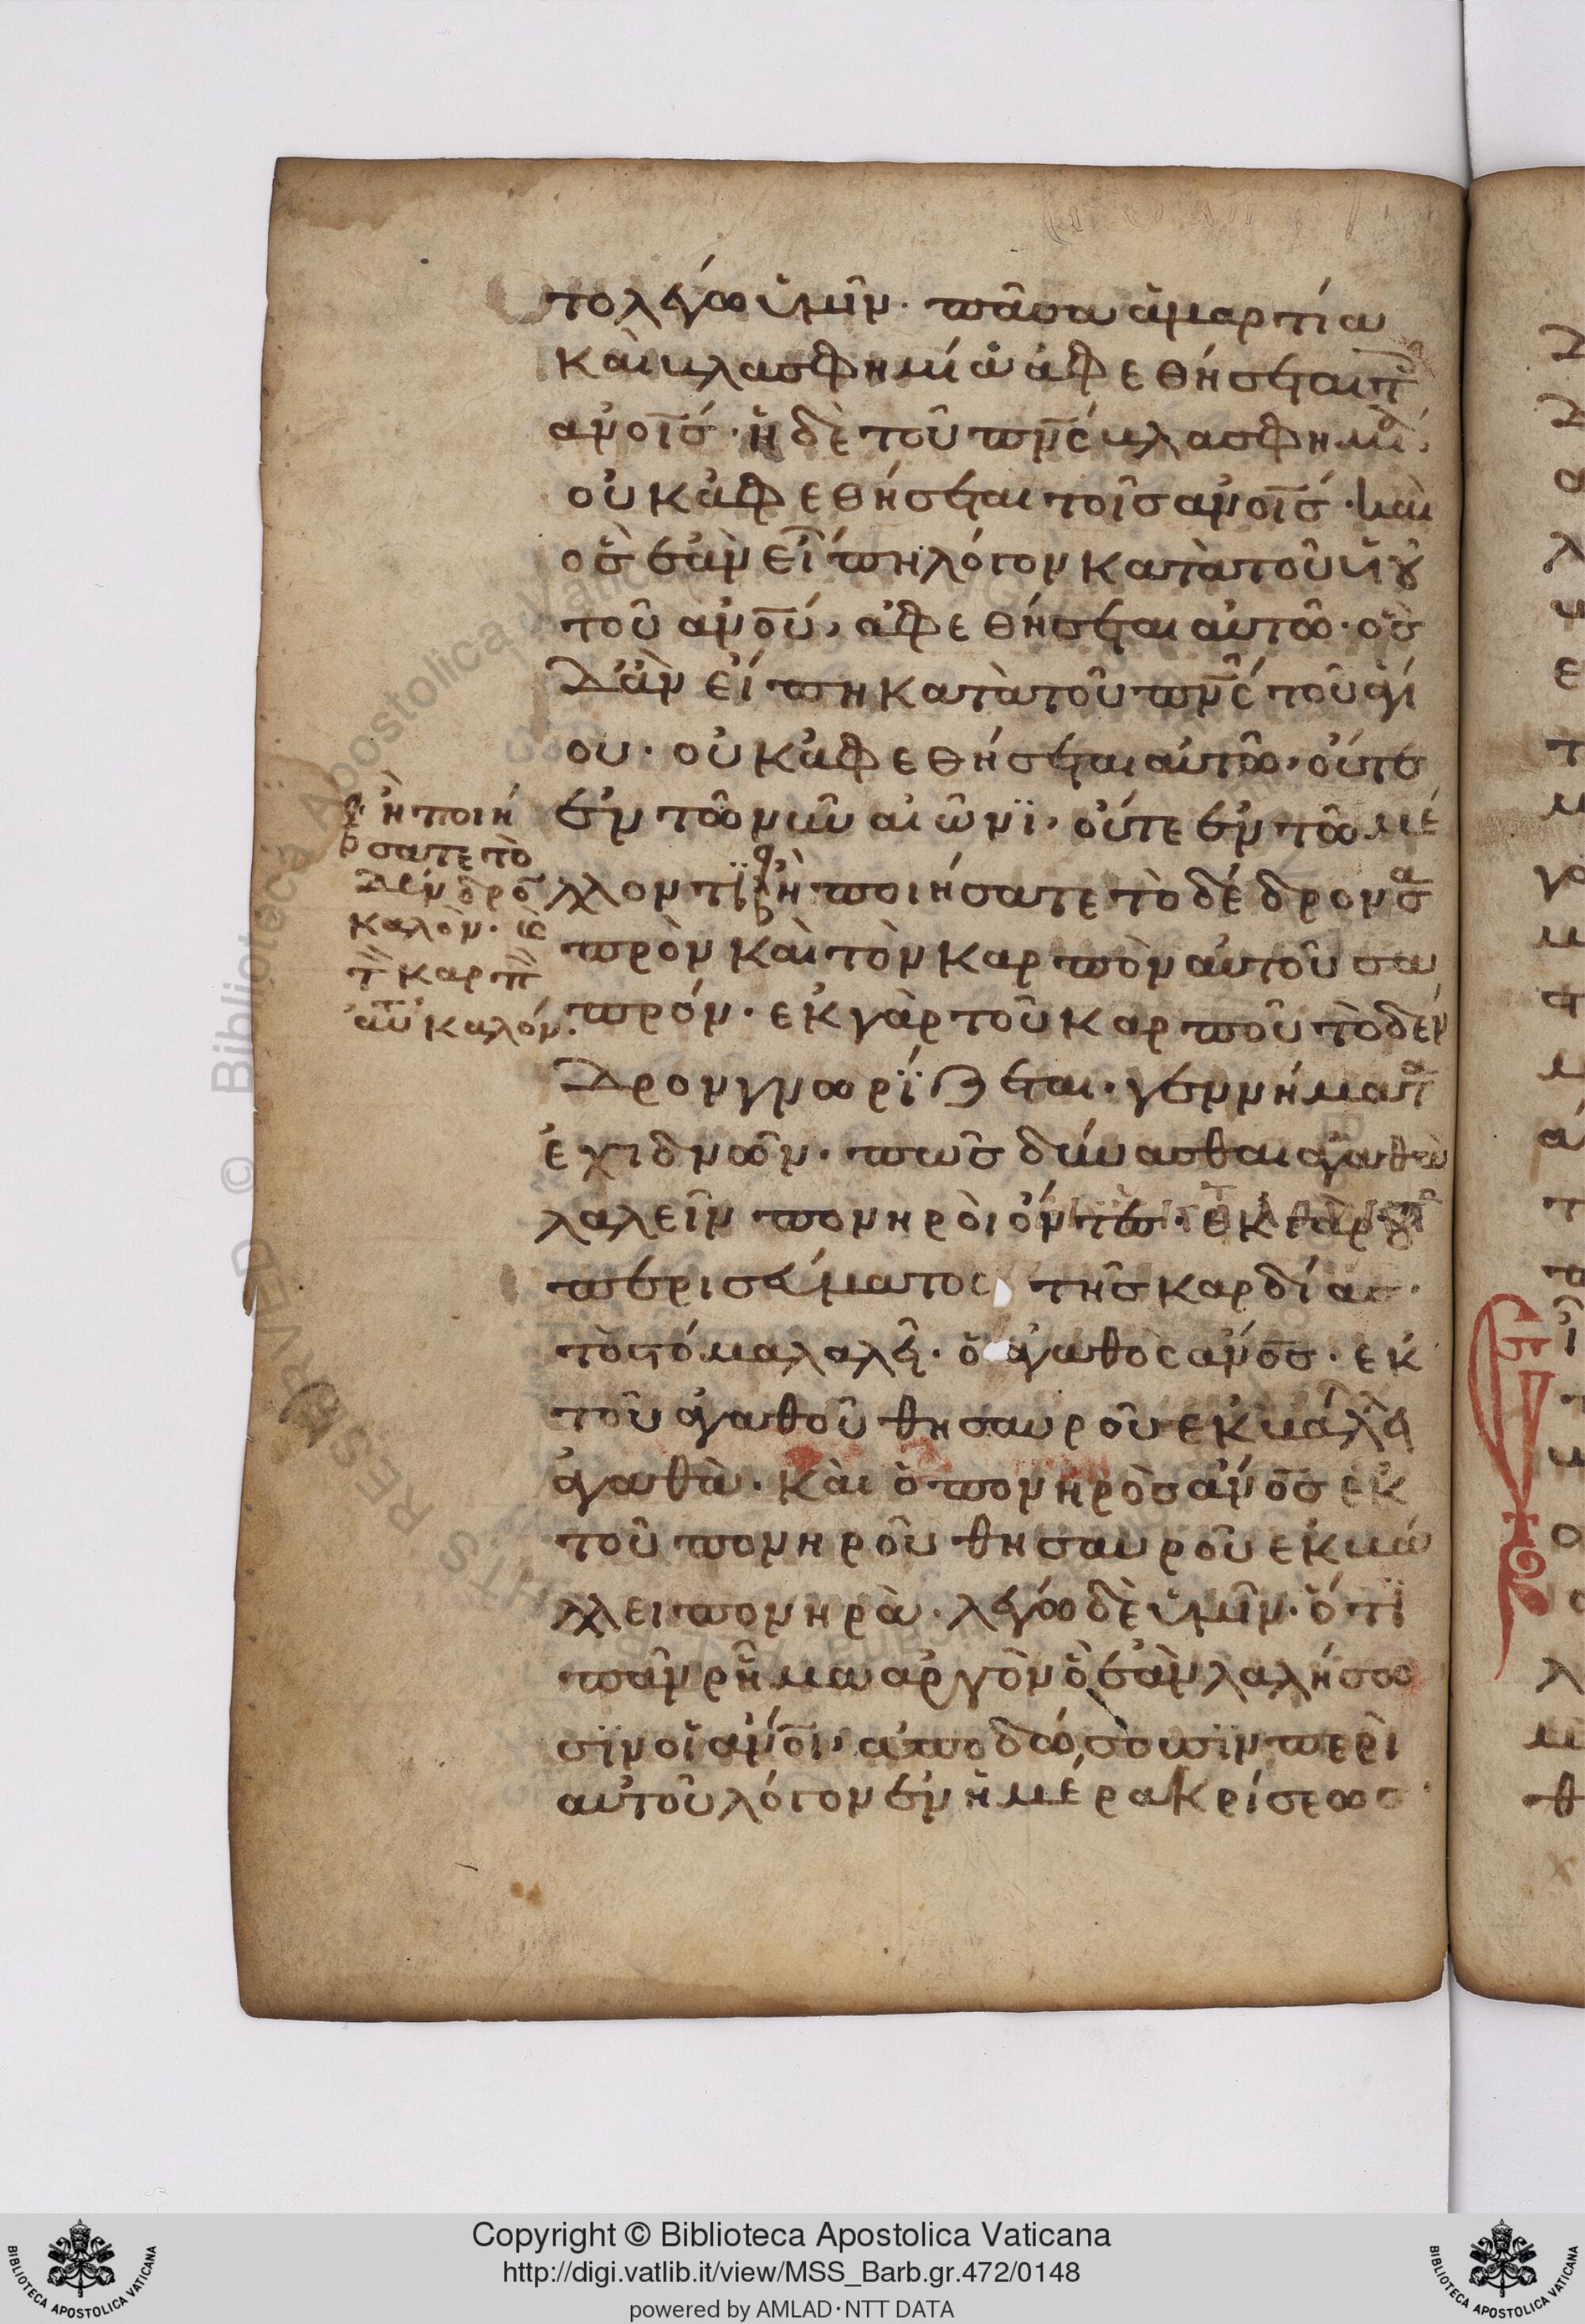 το λέγω ὑμῖν· πᾶσα ἁμαρτία
καὶ βλασφημία ἀφεθήσεται τοῖς
ἀν̅οις· ἡ δὲ τοῦ πν̅ς βλασφημία
οὐκ ἀφεθήσεται τοῖς ἀν̅οις· καὶ
ὃς ἐὰν εἴπη λόγον κατὰ τοῦ υἱοῦ
τοῦ ἀν̅ου, ἀφεθήσεται αὐτῶ· ὃς
δ' ἂν εἴπη κατὰ τοῦ πν̅ς τοῦ ἁγί
ου· οὐκ ἀφεθήσεται αὐτῶ· οὔτε
ἐν τῶ νῦν αἰῶνϊ· οὔτε ἐν τῶ μέ
λλοντϊ ἢ ποιήσατε τὸ δέδρον σα
πρὸν καὶ τὸν καρπὸν αὐτοῦ σα
πρόν· ἐκ γὰρ τοῦ καρποῦ τὸ δέν
δρον γνωρΐζεται· γεννήματα
ἐχιδνῶν· πῶς δύνασθαι ἀγαθὰ
λαλεῖν πονηροὶ ὄντες· ἐκ γὰρ τοῦ
περισεύματος τῆς καρδίας·
τὸ στόμα λαλεῖ· ὁ ἀγαθὸς ἀν̅ος· ἐκ
τοῦ ἀγαθοῦ θησαυροῦ ἐκβάλλει
ἀγαθὰ· καὶ ὁ πονηρὸς ἀν̅ος ἐκ
τοῦ πονηροῦ θησαυροῦ ἐκβά
λλει πονηρὰ· λέγω δὲ ὑμῖν· ὅτϊ
πᾶν ῥῆμα ἀργὸν ὃ ἐὰν λαλήσω
σϊν οἱ ἀν̅οι, ἀποδώσουσϊν περὶ
αὐτοῦ λόγον ἐν ἡμέρα κρίσεως·
ἢ ποιή
σατε τὸ
δένδρο̅
καλὸν· καὶ
τὸν καρπὸν
αὐτοῦ καλόν.
© Biblioteca Apostolica Vaticana
Copyright © Biblioteca Apostolica Vaticana
http://digi.vatlib.it/view/MSS_Barb.gr.472/0148
powered by AMLAD·NTT DATA
BIBLIOTECA APOSTOLICA VATICANA
BIBLIOTECA APOSTOLICA VATICANA